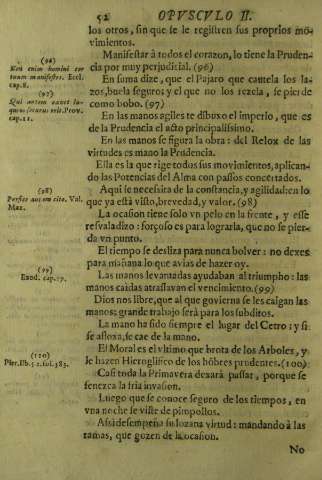 52 OPVSCVLO II.
los otros, sin que se le registren sus proprios mo-
vimientos.
Manifestar à todos el corazon, lo tiene la Pruden-
cia por muy perjudicial. (96)
En suma dize, que el Pajaro que cautela los la-
zos, buela seguro; y el que no los rezela, se pierde
como bobo. (97)
En las manos agiles te dibuxo el imperio, que es
de la Prudencia el acto principalissimo.
En las manos se figura la obra: del Relox de las
virtudes es mano la Prudencia.
Ella es la que rige todas sus movimientos, aplican-
do las Potencias del Alma con passos concertados.
Aqui se necessita de la constancia, y agilidad: en lo
que ya està visto, brevedad, y valor. (98)
La ocasion tiene solo vn pelo en la frente, y esse
resvaladizo: forçoso es para lograrla, que no se pier-
da vn punto.
El tiempo se desliza para nunca bolver: no dexes
para mañana lo que avias de hazer oy.
Las manos levantadas ayudaban al triumpho: las
manos caidas atrassavan el vencimiento. (99)
Dios nos libre, que al que govierna se les caigan las
manos; grande trabajo serà para los subditos.
La mano ha sido siempre el lugar del Cetro; y si
se afloxa, se cae de la mano.
El Moral es el vltimo que brota de los Arboles, y
le hazen Hieroglifico de los hõbres prudentes. (100)
Casi toda la Primavera dexarà passar, porque se
fenezca la fria invasion.
Luego que se conoce seguro de los tiempos, en
vna noche se viste de pimpollos.
Assi desempeña su lozana virtud: mandando à las
ramas, que gozen de la ocasion.
No
(96)
Non enim homini cor
tuum manifestes. Eccl.
cap.8.
(97)
Qui autem cavet la-
queos securus erit. Prov.
cap.11.
(98)
Val.
Max.
(99)
Exod. cap.17.
(100)
Pier. lib.52. fol.385.